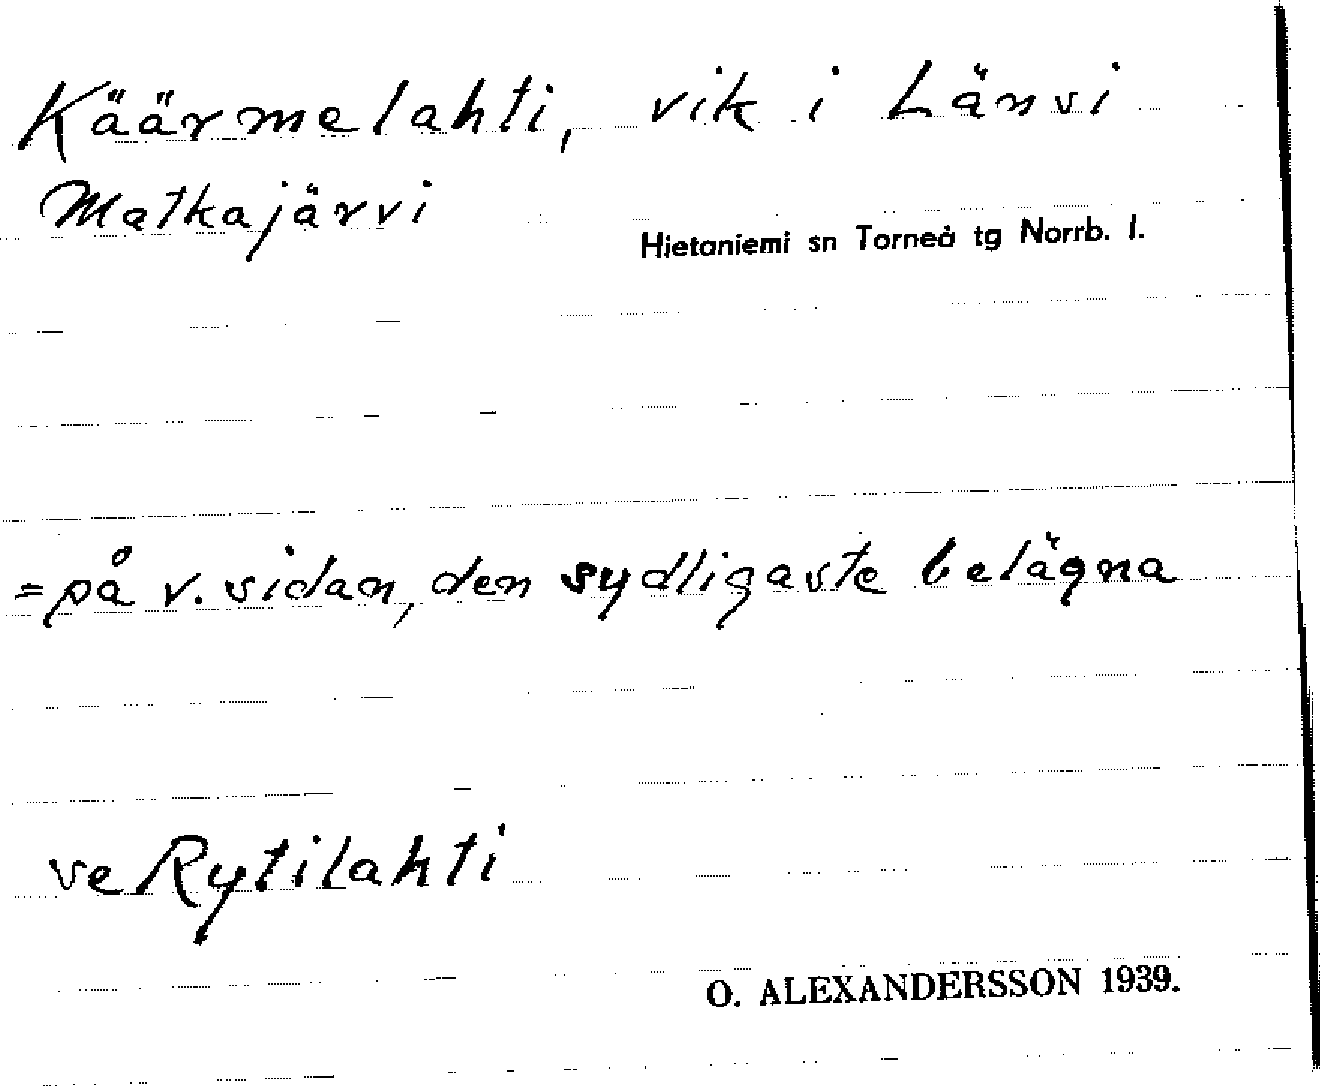 Käärmelahti, vik i Länsi
Matkajärvi
Hietaniemi sn Torneå tg Norrb. l.
= på v. sidan, den sydligaste belägna
ve Rytilahti
O. ALEXANDERSSON 1939.